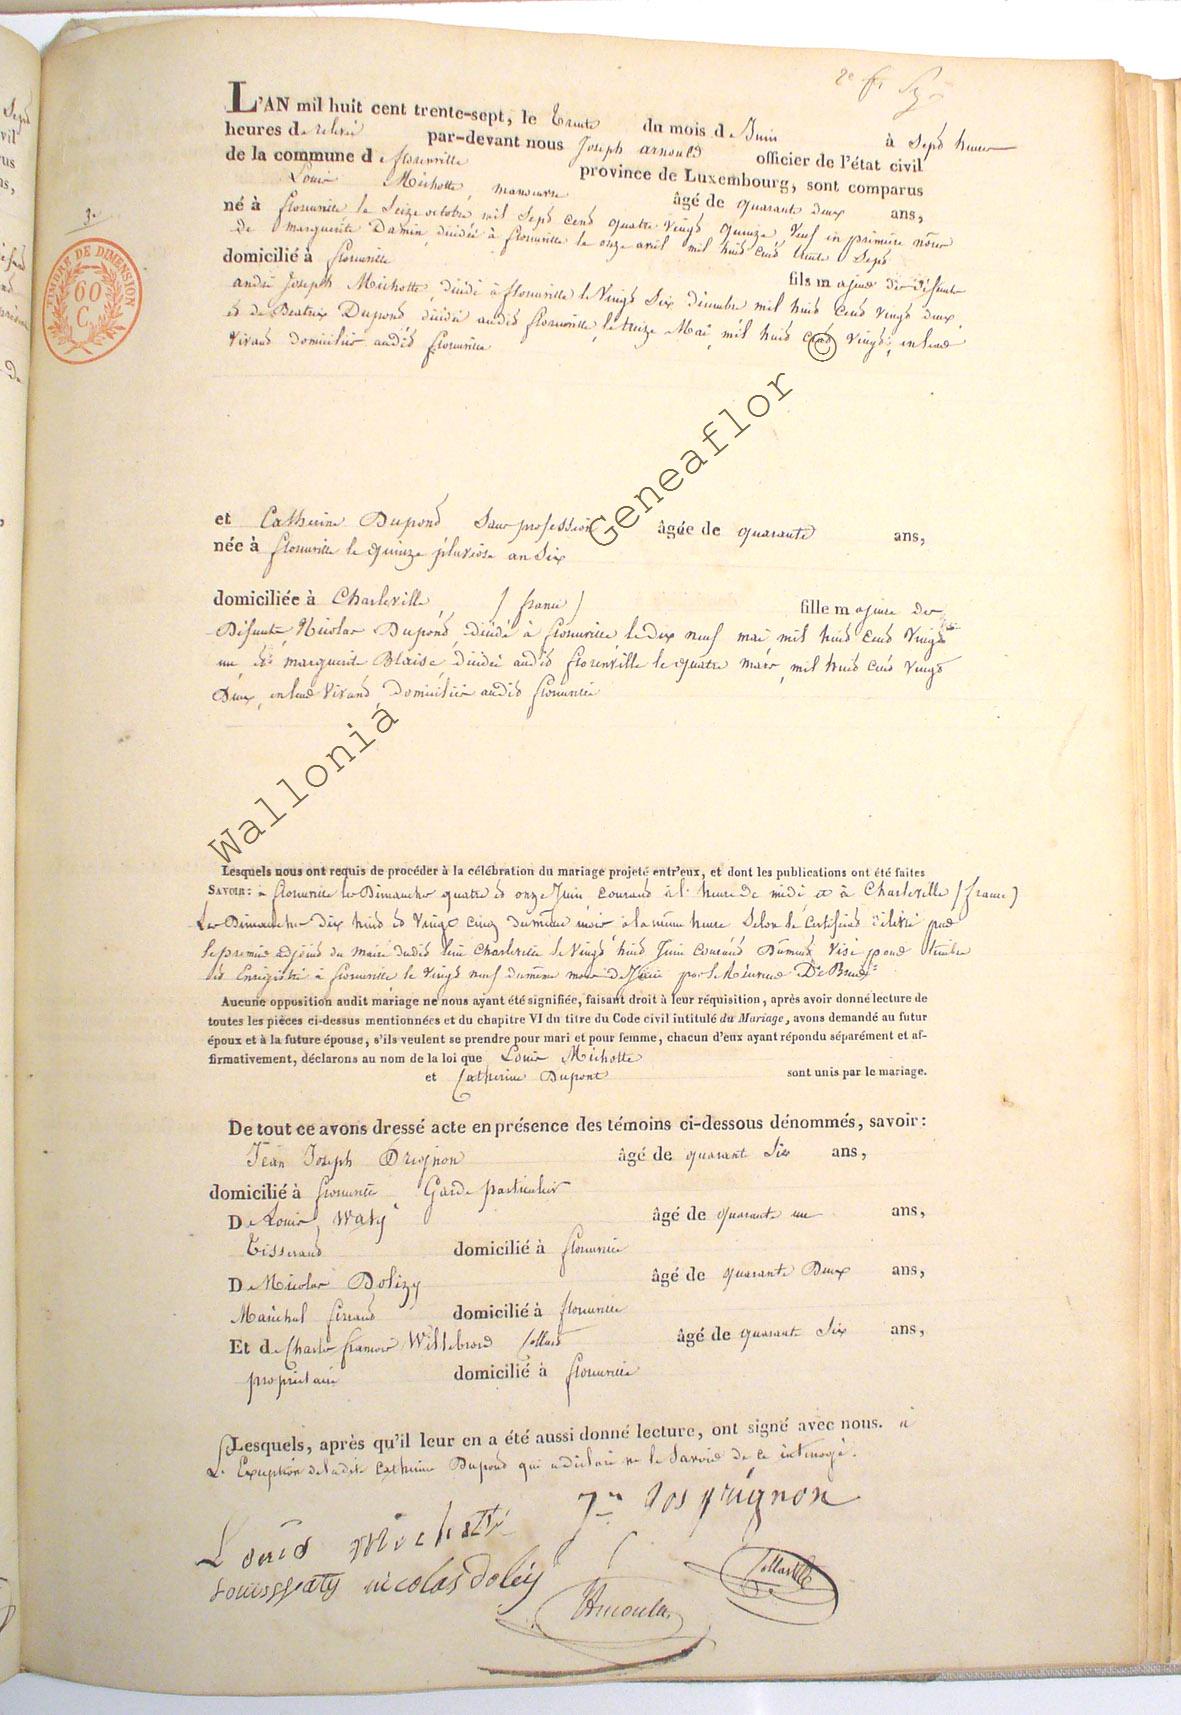 3.
TIMBRE DE DIMENSION
60
C.
L'AN mil huit cent trente-sept, le trente du mois de Juin à Sept heures
heures de relevé par-devant nous Joseph Arnould officier de l'état civil
de la commune de florenville province de Luxembourg, sont comparus
Louis Michotte, manoeuvre âgé de quarante deux ans,
né à florenville le Seize octobre mil Sept cent quatre vingt quinze Veuf en première nôces
de marguerite Damin, décédée à florenville le onze avril mil huit cent trente Sept
domicilié à florenville fils majeur des défunts
andré Joseph Michotte, décédé à florenville le Vingt Six décembre mil huit cent vingt deux,
et de Beatrix Dupont décédée audit florenville, le treize Mai, mil huit cent vingt, en leur
vivant domiciliés audit florenville
et Catherine Dupond Sans profession âgée de quarante ans,
née à florenville le quinze pluviose an Six
domiciliée à Charleville, / france / fille majeure des
Défunts Nicolas Dupond, décédé à florenville le dix neuf mai mil huit cent Vingt
un Et marguerite Blaise, décédée audit florenville le quatre mars, mil huit cent vingt
Deux, en leur vivant, Domiciliés audit florenville
Lesquels nous ont requis de procéder à la célébration du mariage projeté entr'eux, et dont les publications ont été faites
SAVOIR: à florenville les Dimanches quatre et onze Juin courant à l'heure de midi et à Charleville / france /
Les Dimanches dix huit et vingt cinq du même mois à la même heure Selon le Certificat délivré par
le premier adjoint du Maire dudit lieu Charleville le Vingt huit Juin courant Dument Visé pour timbre
et Enrigistré à florenville le vingt neuf du même mois de Juin par le Receveur De
Aucune opposition audit mariage ne nous ayant été signifiée, faisant droit à leur réquisition, après avoir donné lecture de
toutes les pièces ci-dessus mentionnées et du chapitre VI du titre du Code civil intitulé du Mariage, avons demandé au futur
époux et à la future épouse, s'ils veulent se prendre pour mari et pour femme, chacun d'eux ayant répondu séparément et af-
firmativement, déclarons au nom de la loi que Louis Michotte
et Catherine Dupont sont unis par le mariage.
De tout ce avons dressé acte en présence des témoins ci-dessous dénommés, savoir:
Jean Joseph Grignon âgé de quarant Six ans,
domicilié à florenville Garde particulier
De Louis Waty âgé de quarante un ans,
Tisserand domicilié à florenville
De Nicolas Dolizy âgé de quarante Deux ans,
Maréchal ferrand domicilié à florenville
Et de Charles francois Willebrord Collard âgé de quarante Six ans,
propriétaire domicilié à florenville
Lesquels, après qu'il leur en a été aussi donné lecture, ont signé avec nous. à
L'Exception de ladite Catherine Dupond qui a déclaré ne le Savoir de ce interrogé.
Louis michotte Jn Jos grignon
Louis Waty nicolas Dolizy
JArnould
Collard
Wallonia Geneaflor ©